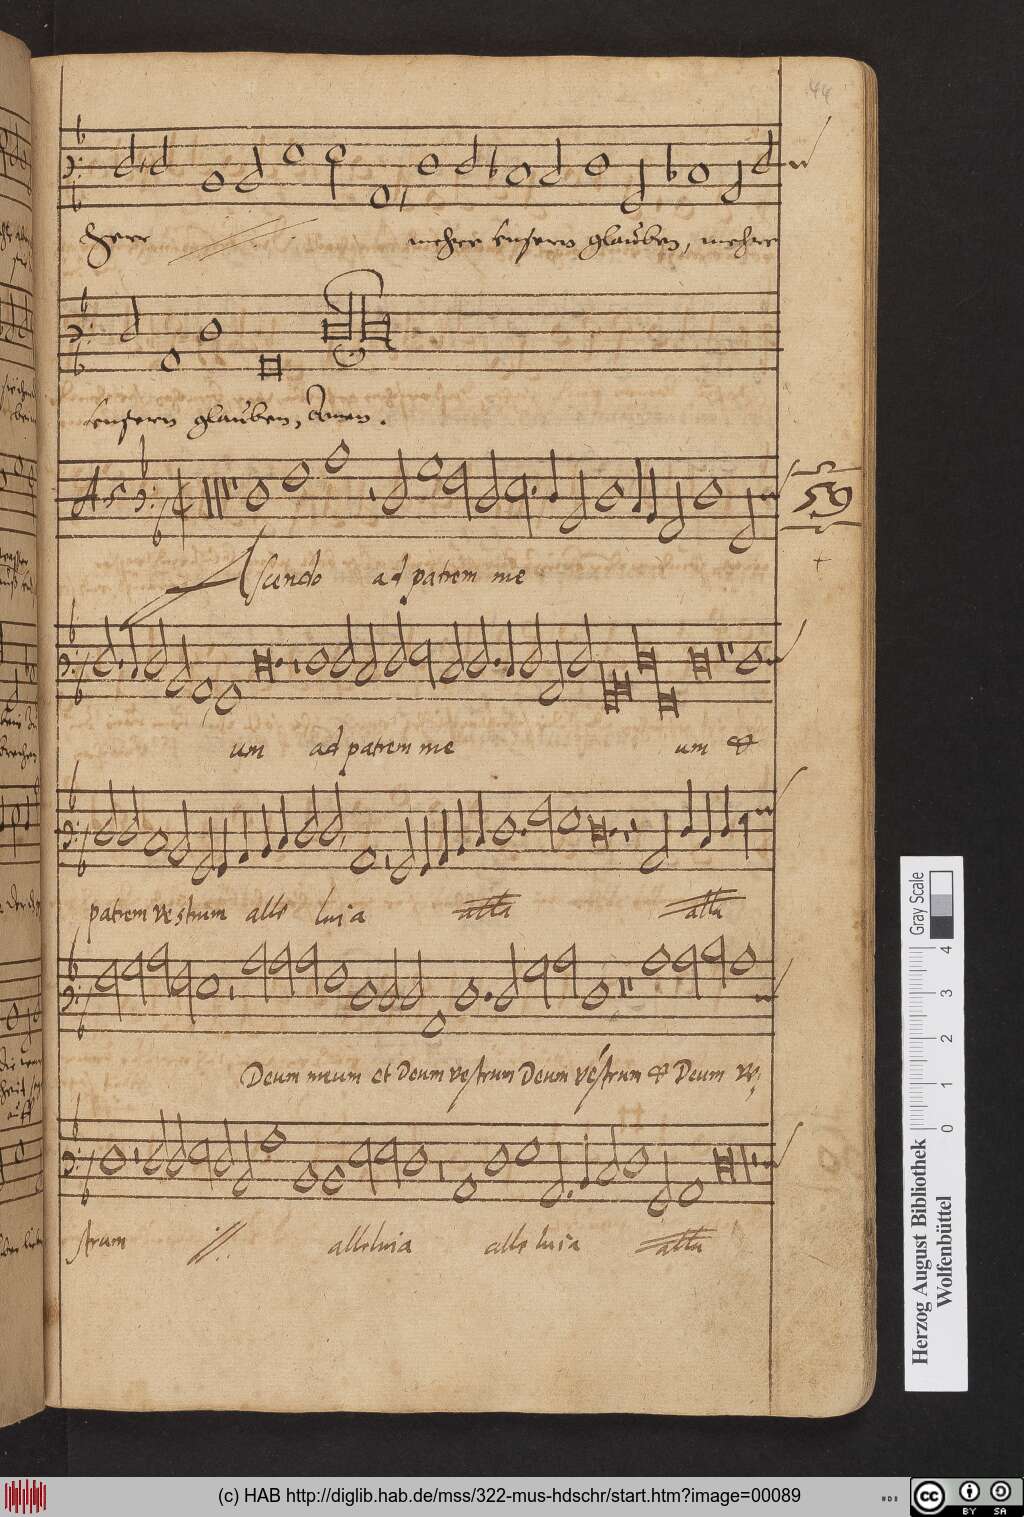 44
Herr mehre unsern glauben, mehre
unsern glauben, Amen.
59
Ascendo ad patrem me
um ad patrem me um &
patrem vestrum alle luia alla alla
Deum meum et Deum vestrum Deum vestrum & Deum ve
strum alleluia alle luia alla
Herzog August Bibliothek
Wolfenbüttel
Gray Scale
0 1 2 3 4
(c) HAB http://diglib.hab.de/mss/322-mus-hdschr/start.htm?image=00089
cc BY SA